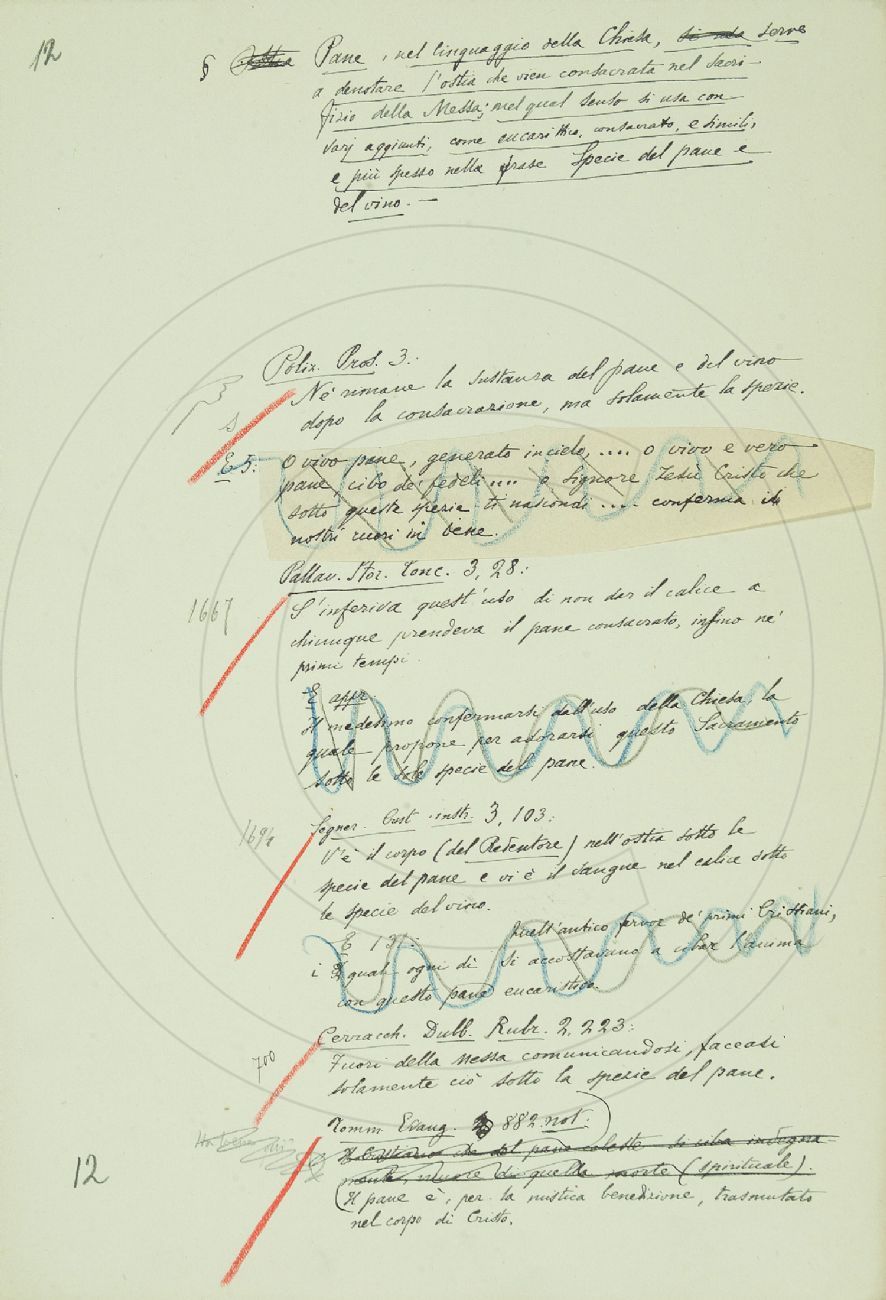 12
§ Pane, nel linguaggio della Chiesa, si usa serve
a denotare l'ostia che vien consacrata nel sacri-
fizio della Messa; nel qual senso si usa con
varj aggiunti, come eucaristico, consacrato, e simili,
e più spesso nella frase Specie del pane e
del vino. —
Poliz. Pros. 3.:
Nè rimane la sustanza del pane e del vino
dopo la consacrazione, ma solamente la spezie.
E 5: O vivo pane, generato in cielo, .... o vivo e vero
pane, cibo de' fedeli .... o Signore Jesù Cristo che
sotto queste spezie ti nascondi .... conferma i
nostri cuori in bene.
Pallav. Stor. Conc. 3, 28:
1667
S'inferiva quest'uso di non dar il calice a
chiunque prendeva il pane consacrato, infino ne'
primi tempi.
E appr.
Il medesimo confermarsi dall'uso della Chiesa, la
quale propone per adorarsi questo Sacramento
sotto le sole specie del pane.
1694
Segner. Crist. instr. 3, 103:
V'è il corpo (del Redentore) nell'ostia sotto le
specie del pane e vi è il sangue nel calice sotto
le specie del vino.
E 131: Quell'antico fervor de' primi Cristiani,
i quali ogni dì si accostavano a cibar l'anima
con questo pane eucaristico.
700
Cerracch. Dubb. Rubr. 2, 223:
Fuori della messa comunicandosi, faceasi
solamente ciò sotto la spezie del pane.
Tomm. Evang. 882. not.:
del pane celeste si ciba indegna-
mente, muore di quella morte (spirituale).
12
Il pane è, per la mistica benedizione, trasmutato
nel corpo di Cristo.